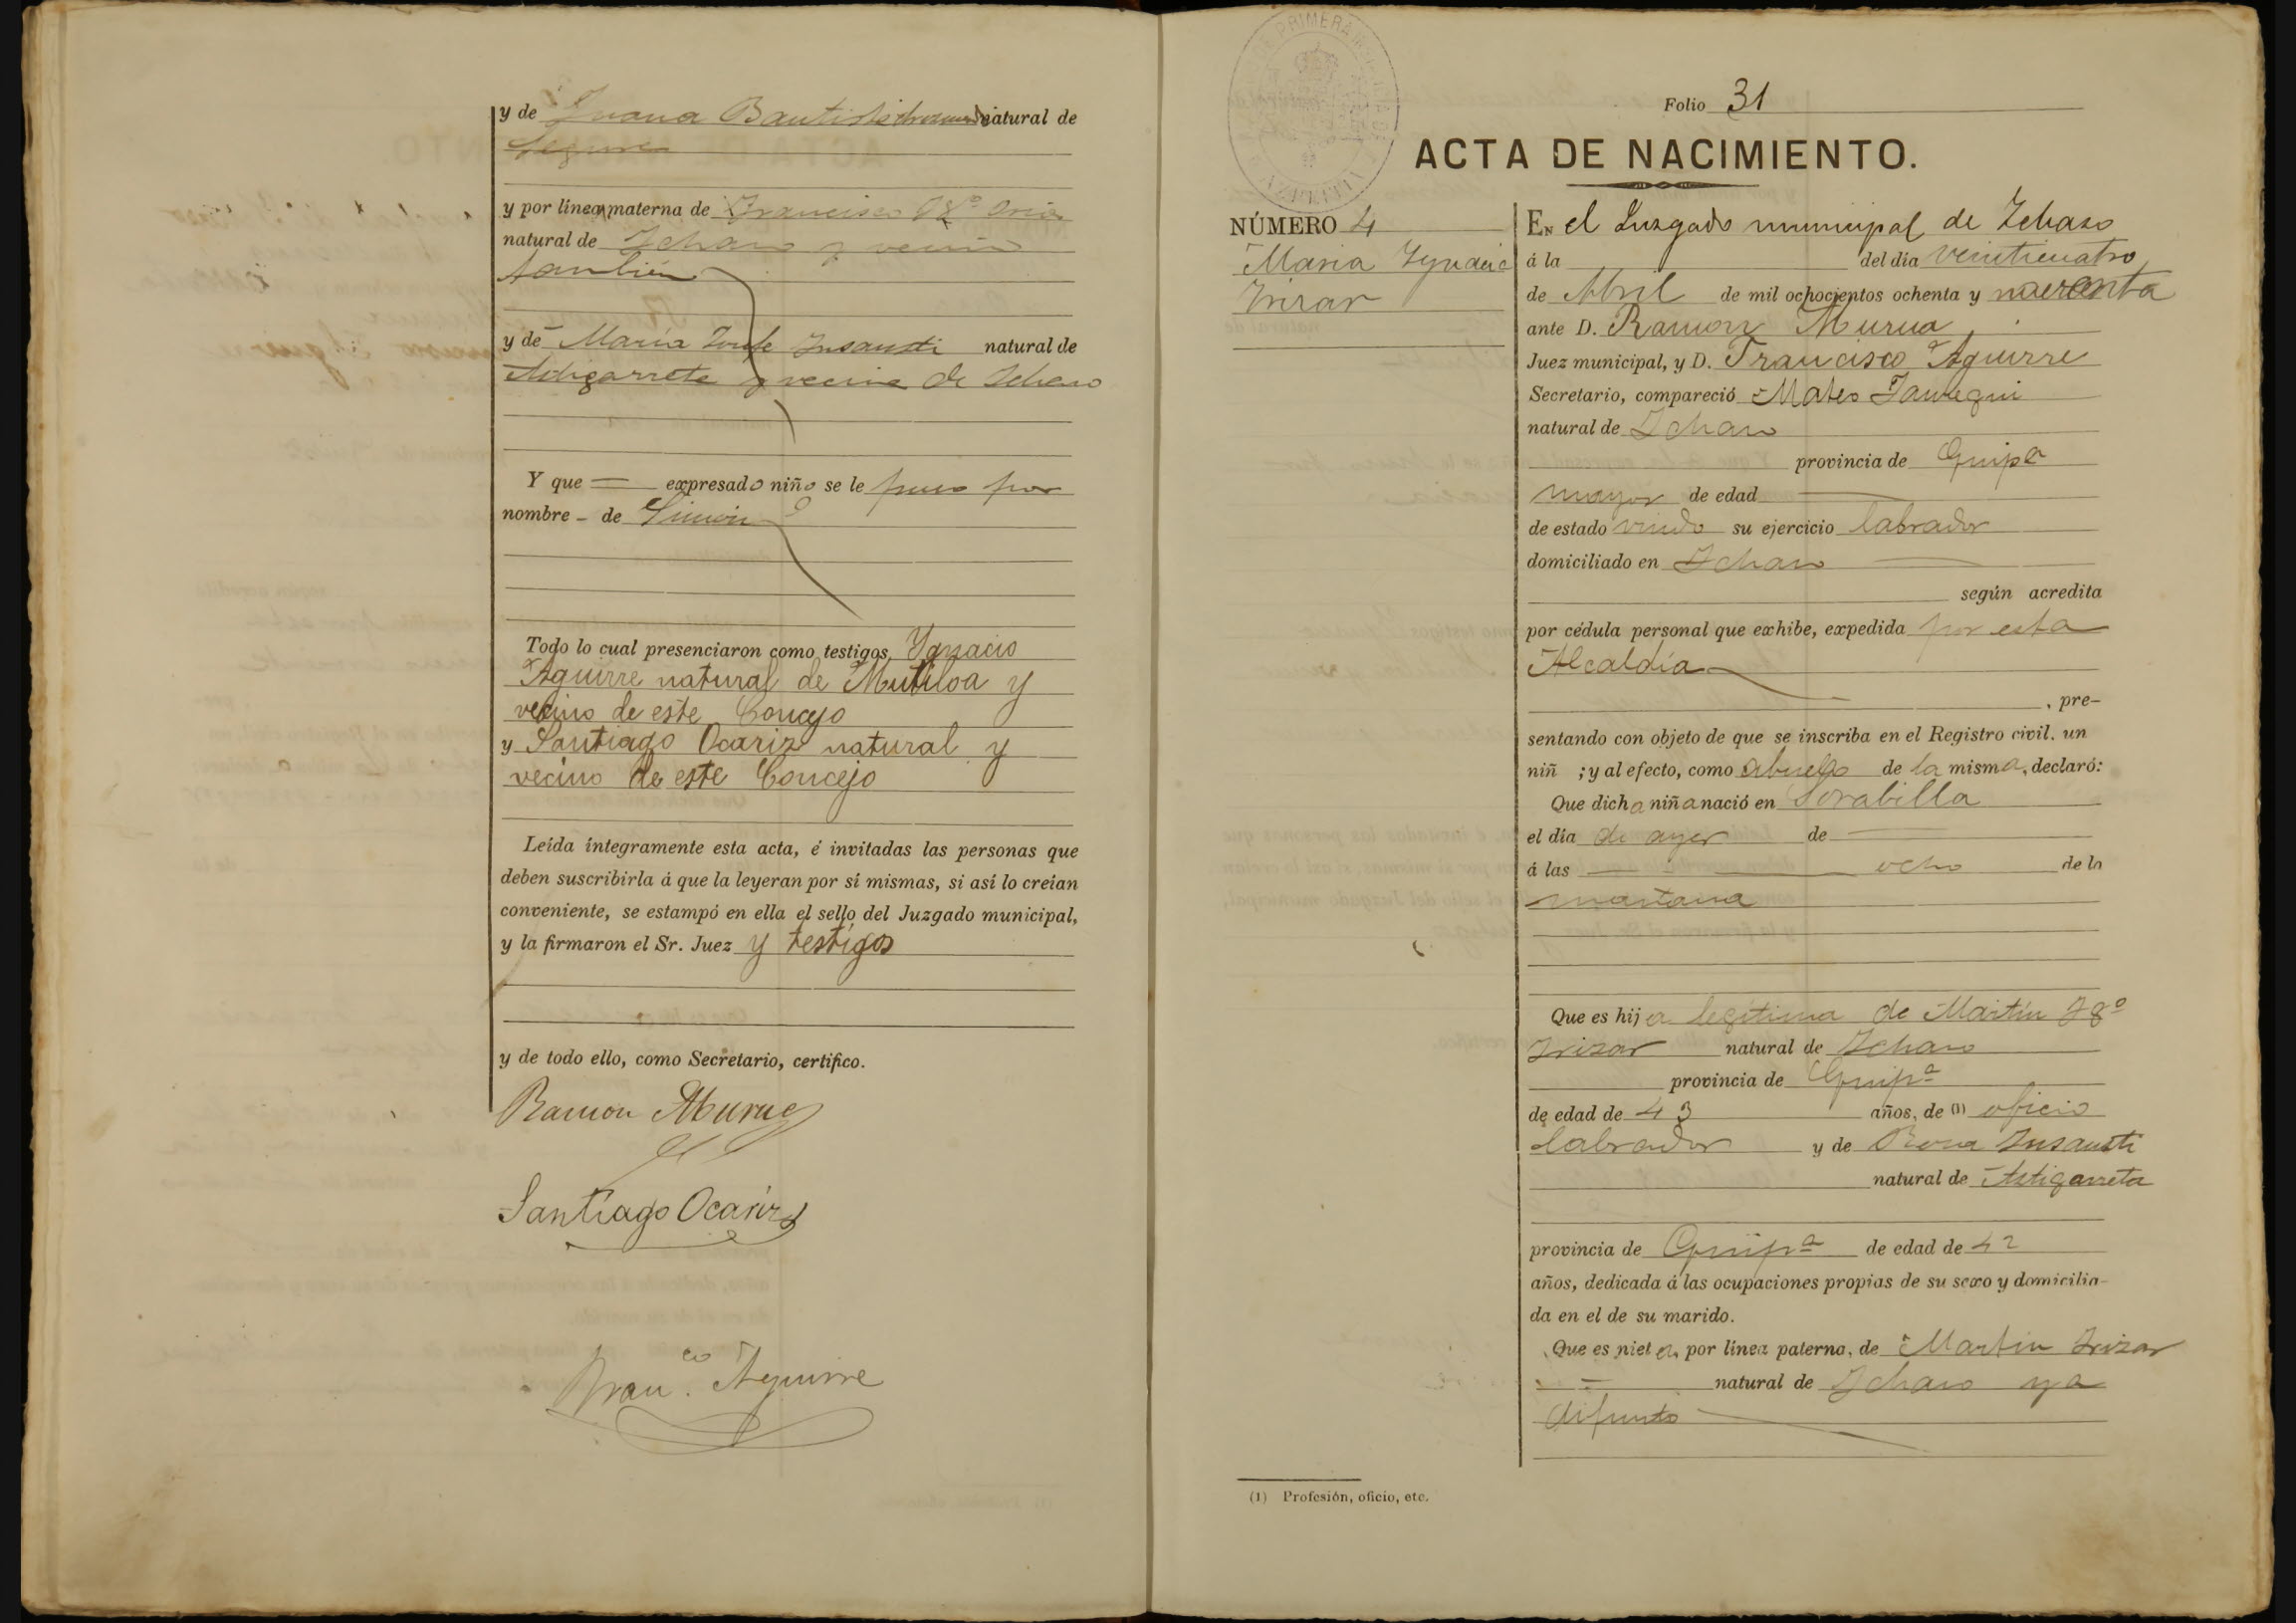 y de Juana Bautista natural de
Segura
y por línea materna de Francisco Ygº Oria
natural de Ichaso y vecino
tambien
y de María Insausti natural de
Astigarreta y vecina de Ichaso
Y que — expresado niño se le puso por
nombre - de Simón
Todo lo cual presenciaron como testigos Ygnacio
Aguirre natural de Mutiloa y
vecino de este Concejo
y Santiago Ocariz natural y
vecino de este Concejo
Leída íntegramente esta acta, é invitadas las personas que
deben suscribirla á que la leyeran por sí mismas, si así lo creían
conveniente, se estampó en ella el sello del Juzgado municipal,
y la firmaron el Sr. Juez y testigos
y de todo ello, como Secretario, certifico.
Ramon Murua
Santiago Ocariz
Franco. Aguirre
Folio 31
ACTA DE NACIMIENTO.
NÚMERO 4
Maria Ygnacia
Irizar
En el Juzgado municipal de Ichaso
á la del día veinticuatro
de Abril de mil ochocientos ochenta y noventa
ante D. Ramon Murua
Juez municipal, y D. Francisco Aguirre
Secretario, compareció Mateo Jauregui
natural de Ichaso
provincia de Guipa
mayor de edad
de estado viudo su ejercicio labrador
domiciliado en Ichaso
según acredita
por cédula personal que exhibe, expedida por esta
Alcaldía
, pre-
sentando con objeto de que se inscriba en el Registro civil, un
niñ ; y al efecto, como abuelo de la misma, declaró:
Que dicha niña nació en Sorabilla
el día de ayer de —
á las ocho de la
mañana
Que es hija legítima de Martín Ygº
Irizar natural de Ichaso
provincia de Guipª
de edad de 43 años, de (1) oficio
labrador y de Rosa Insausti
natural de Astigarreta
provincia de Guipª de edad de 42
años, dedicada á las ocupaciones propias de su sexo y domicilia-
da en el de su marido.
Que es nieta, por línea paterna, de Martin Irizar
natural de Ichaso ya
difunto
(1) Profesión, oficio, etc.